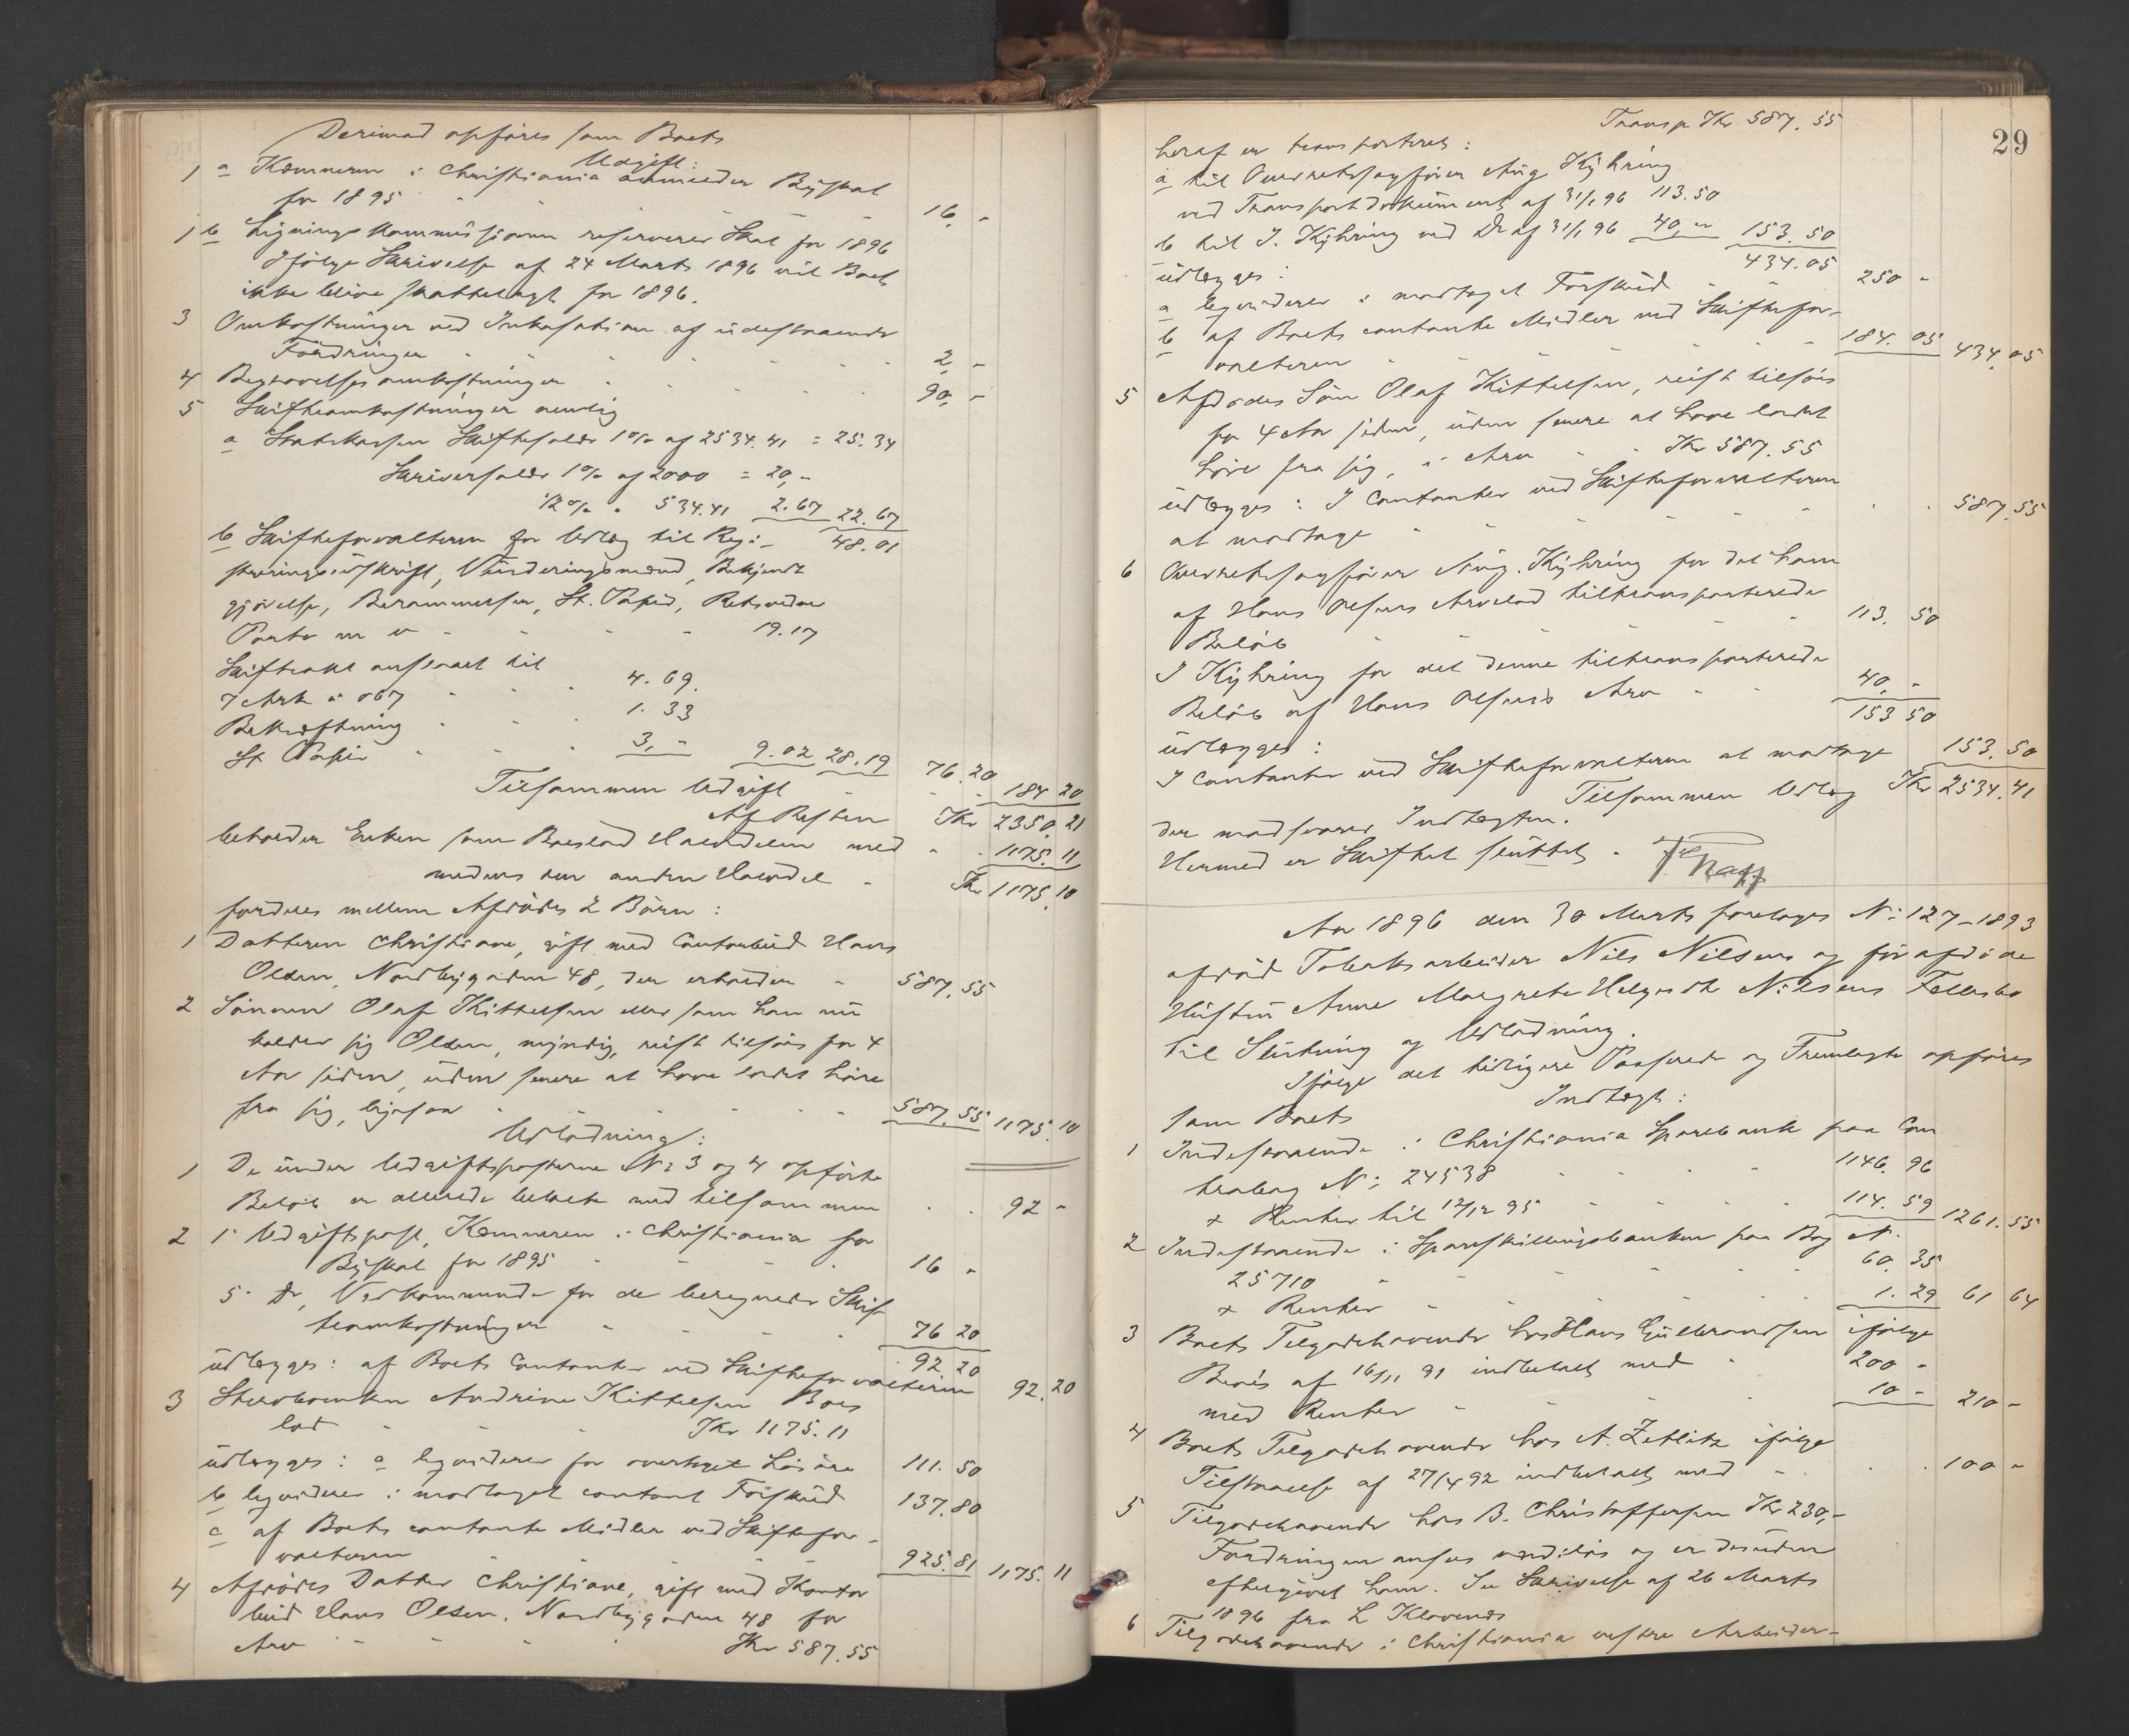 Derimod opføres som Boets
Udgift:
1 a Kæmneren i Christiania anmelder Byskat
for 1895 - - - 16, -
1 b Ligningskommissionen reserverer Skat for 1896
Ifølge Skrivelse af 24 Marts 1896 vil Boet
ikke blive skattelagt for 1896.
3 Omkostninger ved Inkasation af udestaaende
Fordringer - - - 2, -
4 Begravelsesomkostninger - - - 90, -
5 Skifteomkostninger nemlig
a Statskassen Skiftefaldr 1% af 2534.41 = 25.34
Skriverfaldr 1% af 2000 = 20, -
1/2% " 534.41 2.67 22.67
b Skifteforvalteren for Udlæg til Regi- 48.01
streringsudskrift, Vurderingsmænd, Bekjendt
gjørelse, Berammelser, St. Papir, Retsvidner
Porto m v - - - 19.17
Skifteakt anslaaet til
7 Ark à 067 - - - 4.69.
Bekræftning - - - 1.33
St. Papir - - - 3, - 9.02 28.19 76.20
Tilsammen Udgift - - - 184 20
Af Resten Kr 2350.21
beholder Enken som Boeslod Halvdelen med - - 1175.11
medens den anden Halvdel - Kr 1175.10
fordeles mellem Afdødes 2 Børn:
1 Datteren Christiane, gift med Contorbud Hans
Olsen, Nordbygaden 48, der erholder - 587.55
2 Sønnen Olaf Kittelsen eller som han nu
kalder sig Olsen, myndig, reist tilsøs for 4
Aar siden, uden senere at have ladet høre
fra sig, ligesaa - - - 587.55 1175.10
Udlodning:
1 De under Udgiftsposterne No 3 og 4 opførte
Beløb er allerede betalte med tilsammen - - 92 -
2 1. Udgiftspost, Kæmneren i Christiania for
Byskat for 1895 - - - 16 -
5. Do, Vedkommende for de beregnede Skif-
teomkostninger - - - 76 20
92 20
udlægges: af Boets Contanter ved Skifteforvalteren 92.20
3 Sterboenken Andrine Kittelsen Boes
lod - - - Kr 1175.11
udlægges: a liqviderer for overtaget Løsøre 111.50
b liqviderer i modtaget contant Forskud 137.80
c af Boets contante Midler ved Skiftefor-
valteren - - - 925.81 1175.11
4 Afdødes Datter Christiane, gift med Kontor
bud Hans Olsen, Nordbygaden 48 for
Arv - - - Kr 587.55
29
Transp Kr 587.55
heraf er transporteret:
a til Overretssagfører Aug Kyhring
ved Transportdokument af 31/1 96 113.50
b til J. Kyhring ved Do af 31/1 96 40, - 153.50
434.05
udlægges:
a liqviderer i modtaget Forskud - - 250 -
b af Boets contante Midler ved Skiftefor-
valteren - - - 184.05 434.05
5 Afdødes Søn Olaf Kittelsen, reist tilsøs
for 4 Aar siden, uden senere at have ladet
høre fra sig, i Arv - - Kr 587.55
udlægges: I Contanter ved Skifteforvalteren
at modtage - - - 587.55
6 Overretssagfører Aug. Kyhring for det ham
af Hans Olsens Arvelod tiltransporterede
Beløb - - - 113.50
J Kyhring for det denne tiltransporterede
Beløb af Hans Olsens Arv - - 40, -
153 50
udlægges:
I Contanter ved Skifteforvalteren at modtage 153.50
Tilsammen Udlæg Kr 2534.41
der modsvarer Indtægten.
Hermed er Skiftet sluttet.
Aar 1896 den 30 Marts foretoges No 127-1893
afdød Tobaksarbeider Nils Nilsens og før afdøde
Hustru Anne Margrethe Helgesdtr Nilsens Fællesbo
til Slutning og Udlodning.
Ifølge det tidligere Passerede og Fremlagte opføres
som Boets Indtægt:
1 Indestaaende i Christiania Sparebank paa Con
trabog No 24538 - - - 1146.96
+ Renter til 12/12 95 - - - 114.59 1261.55
2 Indestaaende i Spareskillingsbanken paa Bog No
25710 - - - 60.35
+ Renter - - - 1.29 61 64
3 Boets Tilgodehavende hos Hans Gulbrandsen ifølge
Bevis af 16/11 91 indbetalt med - 200 -
med Renter - - - 10 - 210 -
4 Boets Tilgodehavende hos A. Zetlitz ifølge
Tilstaaelse af 27/4 92 indbetalt med - - - 100 -
5 Tilgodehavende hos B. Christoffersen Kr 230, -
Fordringen ansees værdiløs og er desuden
eftergivet ham. Se Skrivelse af 26 Marts
1896 fra L Klavenes
6 Tilgodehavende i Christiania vestre Arbeider-